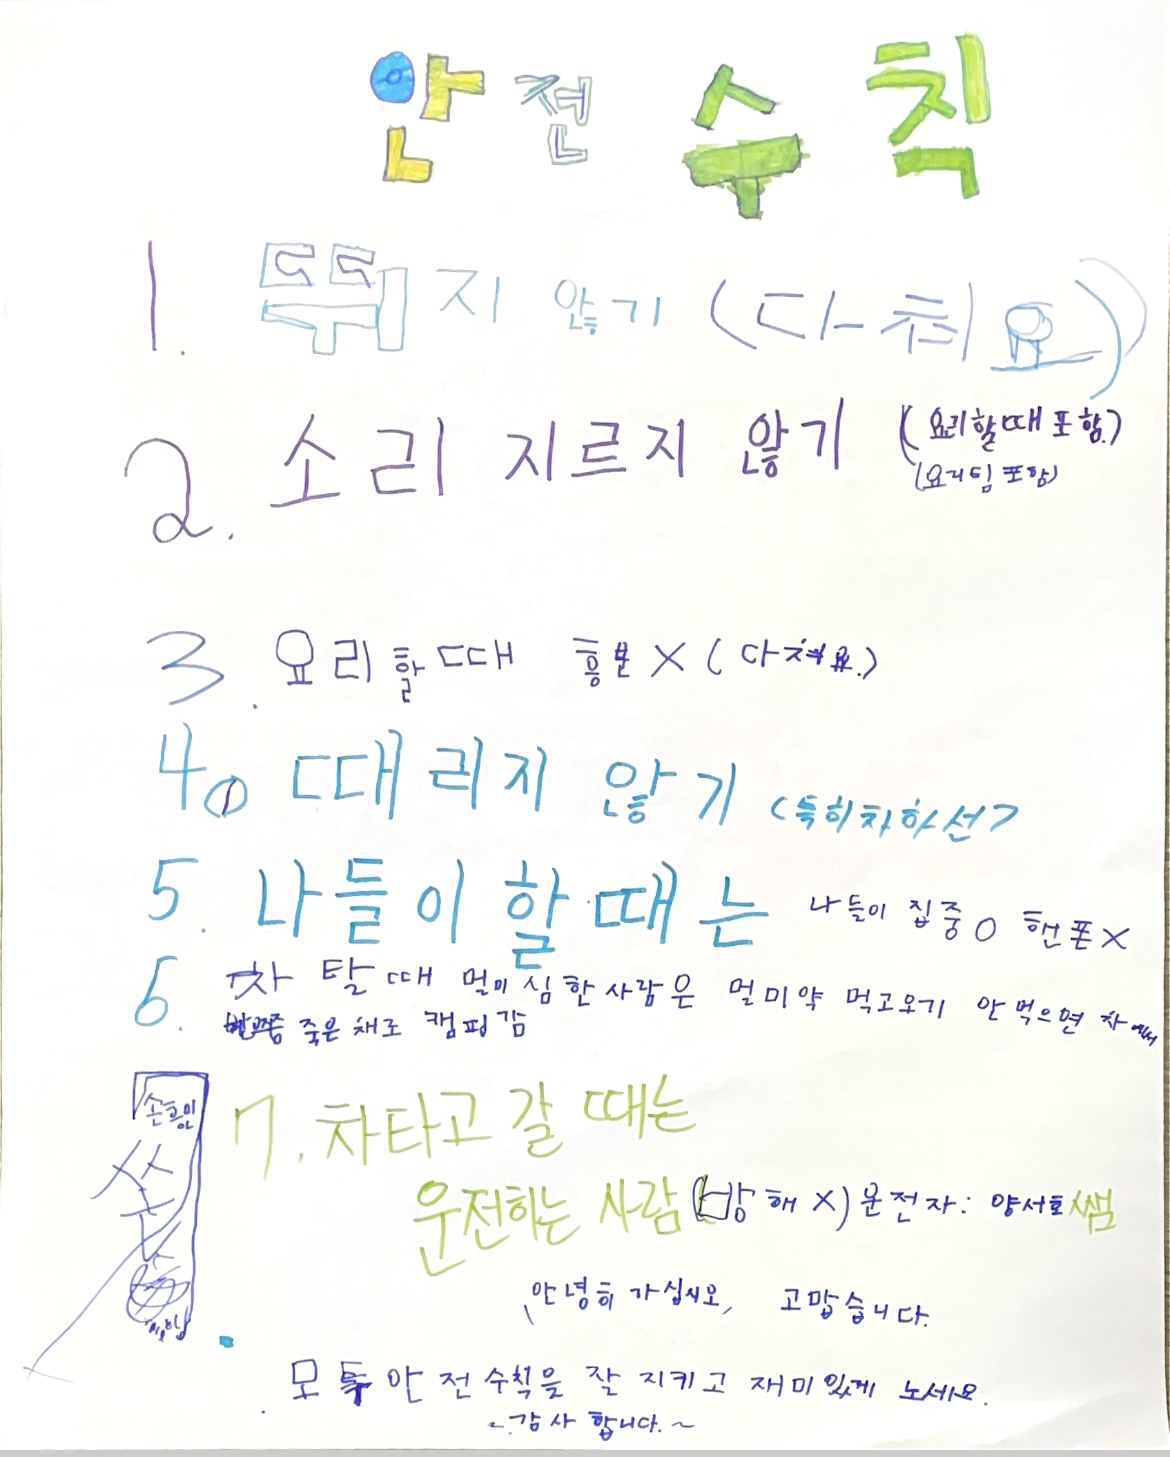 안전 수칙
1. 뛰지 않기 (다쳐요)
2. 소리 지르지 않기 (요리할때 포함.)
(요리팀 포함)
3. 요리할 때 흥분 X (다쳐요.)
4. 때리지 않기 (특히 차하선)
5. 나들이 할 때는 나들이 집중 O 핸폰 X
6. 차 탈 때 멀미 심한 사람은 멀미약 먹고 오기 안 먹으면 차에서
죽은 채로 캠핑감
7. 차타고 갈 때는
운전하는 사람 (방해 X) 운전자: 양서호 쌤
안녕히 가십시오, 고맙습니다.
모두 안전 수칙을 잘 지키고 재미있게 노세요.
~감사합니다.~